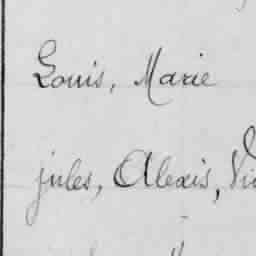 Louis, Marie
jules, Alexis,